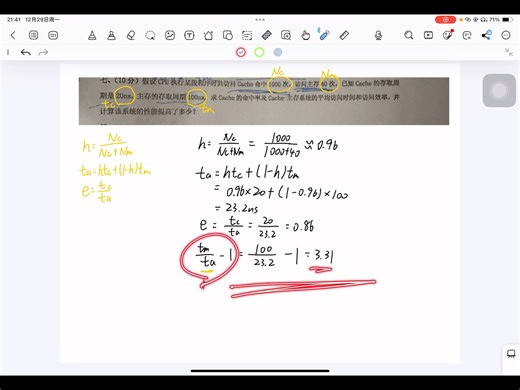 21:41 12月29日周一
71%
Nc Nm
七、(10分) 假设 CPU 执行某段程序时共访问 Cache 命中 1000 次，访问主存 40 次，已知 Cache 的存取周
期是 20ns，主存的存取周期 100ns，求 Cache 的命中率及 Cache 主存系统的平均访问时间和访问效率，并
tc tm
计算该系统的性能提高了多少?
h = Nc/(Nc+Nm)
ta = htc+(1-h)tm
e = tc/ta
h = Nc/(Nc+Nm) = 1000/(1000+40) ≈ 0.96
ta = htc + (1-h)tm
= 0.96×20 + (1-0.96)×100
= 23.2ns
e = tc/ta = 20/23.2 = 0.86
tm/ta - 1 = 100/23.2 - 1 = 3.31